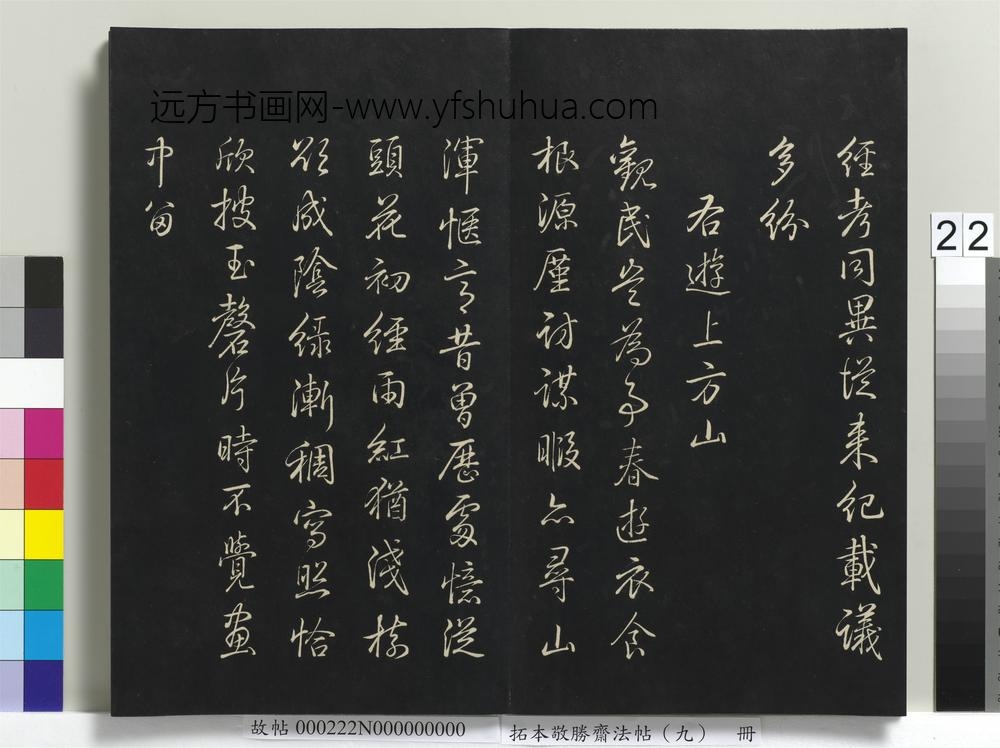 远方书画网-www.yfshuhua.com
經考同異從来紀載議
多紛
右遊上方山
觀民豈為事春遊衣食
根源厪討謀暇亦尋山
渾愜言昔曾歷處憶從
頭花初經雨紅猶淺樹
欲成陰綠漸稠寫照恰
欣披玉磬片時不覺畫
中留
22
故帖 000222N000000000
拓本敬勝齋法帖（九） 冊